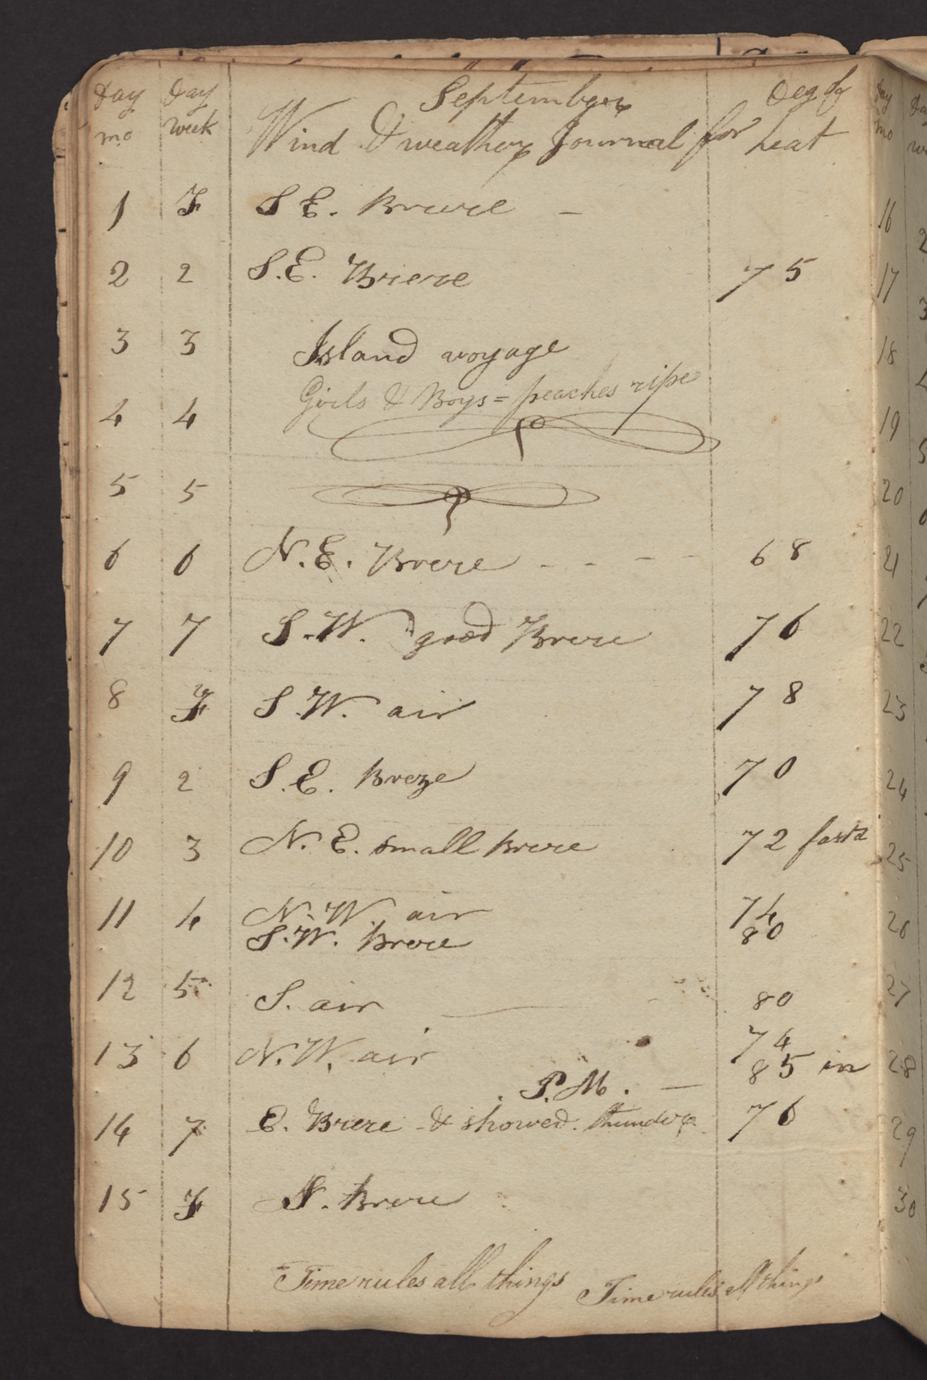 Day Day September Deg of
mo week Wind & weather Journal for heat
1 F S E. Breeze –
2 2 S.E. Brieze 75
3 3 Island voyage
Girls & Boys = peaches ripe
4 4
5 5
6 6 N.E. Breze - - - - 68
7 7 S.W. good Breze 76
8 F S.W. air 78
9 2 S.E. Breze 70
10 3 N.E. small breze 72
11 4 N.W. air 74
S.W. Breze 80
12 5 S. air — 80
13 6 N.W. air 74
P.M. — 85 in
14 7 E. Breze & showed. thunder 76
15 F S. Breze
Time rules all things Time rules all things
16
17
18
19
20
21
22
23
24
25
26
27
28
29
30